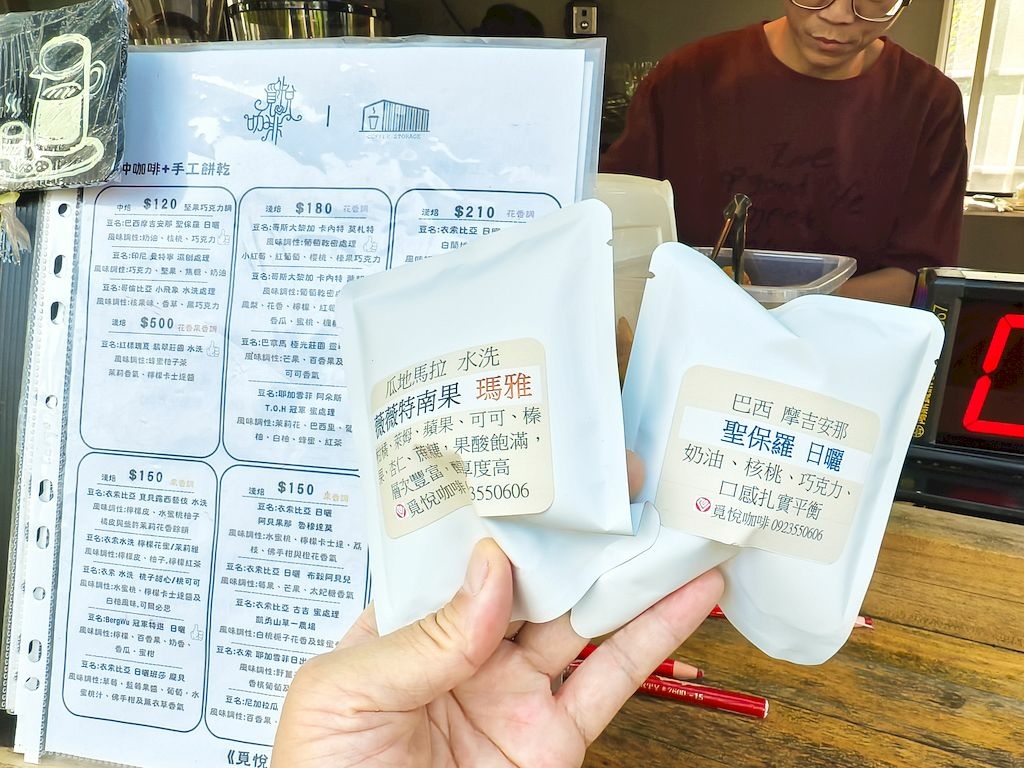 覓悅咖啡
COFFEE STORAGE
沖咖啡+手工餅乾
中焙 $120 堅果巧克力調
豆名:巴西摩吉安那 聖保羅 日曬
風味調性:奶油、核桃、巧克力
豆名:印尼 曼特寧 濕刨處理
風味調性:巧克力、堅果、焦糖、奶油
豆名:哥倫比亞 小飛象 水洗處理
風味調性:核果味、香草、黑巧克力
淺焙 $500 花香果香調
豆名:紅標瑰夏 翡翠莊園 水洗
風味調性:蜂蜜柚子茶
茉莉香氣、檸檬卡士達醬
淺焙 $180 花香調
豆名:哥斯大黎加 卡內特 莫札特
風味調性:葡萄乾密處理
小紅莓、紅葡萄、櫻桃、榛果巧克力
豆名:哥斯大黎加 卡內特
風味調性:葡萄乾
鳳梨、花香、檸檬、紅
香瓜、蜜桃、
豆名:巴拿馬 極光莊園
風味調性:芒果、百香果及
可可香氣
豆名:耶加雪菲 阿朵斯
T.O.H 冠軍 蜜處理
風味調性:茉莉花、巴西里、
柚、白柚、蜂蜜、紅茶
淺焙 $210 花香調
豆名:衣索比亞
淺焙 $150 果香調
豆名:衣索比亞 寶貝露西藝伎 水洗
風味調性:檸檬皮、水蜜桃柚子
橘皮與些許茉莉花香餘韻
豆名:衣索水洗 檸檬花蜜/茉莉雖
風味調性:檸檬皮、柚子、檸檬紅茶
豆名:衣索 水洗 桃子甜心/桃可可
風味調性:水蜜桃、檸檬卡士達醬及
白柚風味、可爾必思
豆名:BergWu 冠軍特選 日曬
風味調性:檸檬、百香果、奶香、
香瓜、蜜柑
豆名:衣索比亞 日曬班莎 龐貝
風味調性:草莓、藍莓果醬、葡萄、水
蜜桃汁、佛手柑及薰衣草香氣
淺焙 $150 果香調
豆名:衣索比亞 日曬
阿貝果那 魯穆達莫
風味調性:水蜜桃、檸檬卡士達、荔
枝、佛手柑與橙花香氣
豆名:衣索比亞 日曬 布穀阿貝兒
風味調性:莓果、芒果、太妃糖香氣
豆名:衣索比亞 古吉 蜜處理
凱勇山單一農場
風味調性:白桃梔子花香及蜂蜜
豆名:衣索 耶加雪菲日出
風味調性:野薑
香檳葡萄及
豆名:尼加拉瓜
風味調性:百香果、
《覓悅
瓜地馬拉 水洗
薇薇特南果 瑪雅
柑橘、萊姆、蘋果、可可、榛
果、杏仁、蔗糖、果酸飽滿,
層次豐富、醇厚度高
覓悅咖啡 3550606
巴西 摩吉安那
聖保羅 日曬
奶油、核桃、巧克力、
口感扎實平衡
覓悅咖啡 0923550606